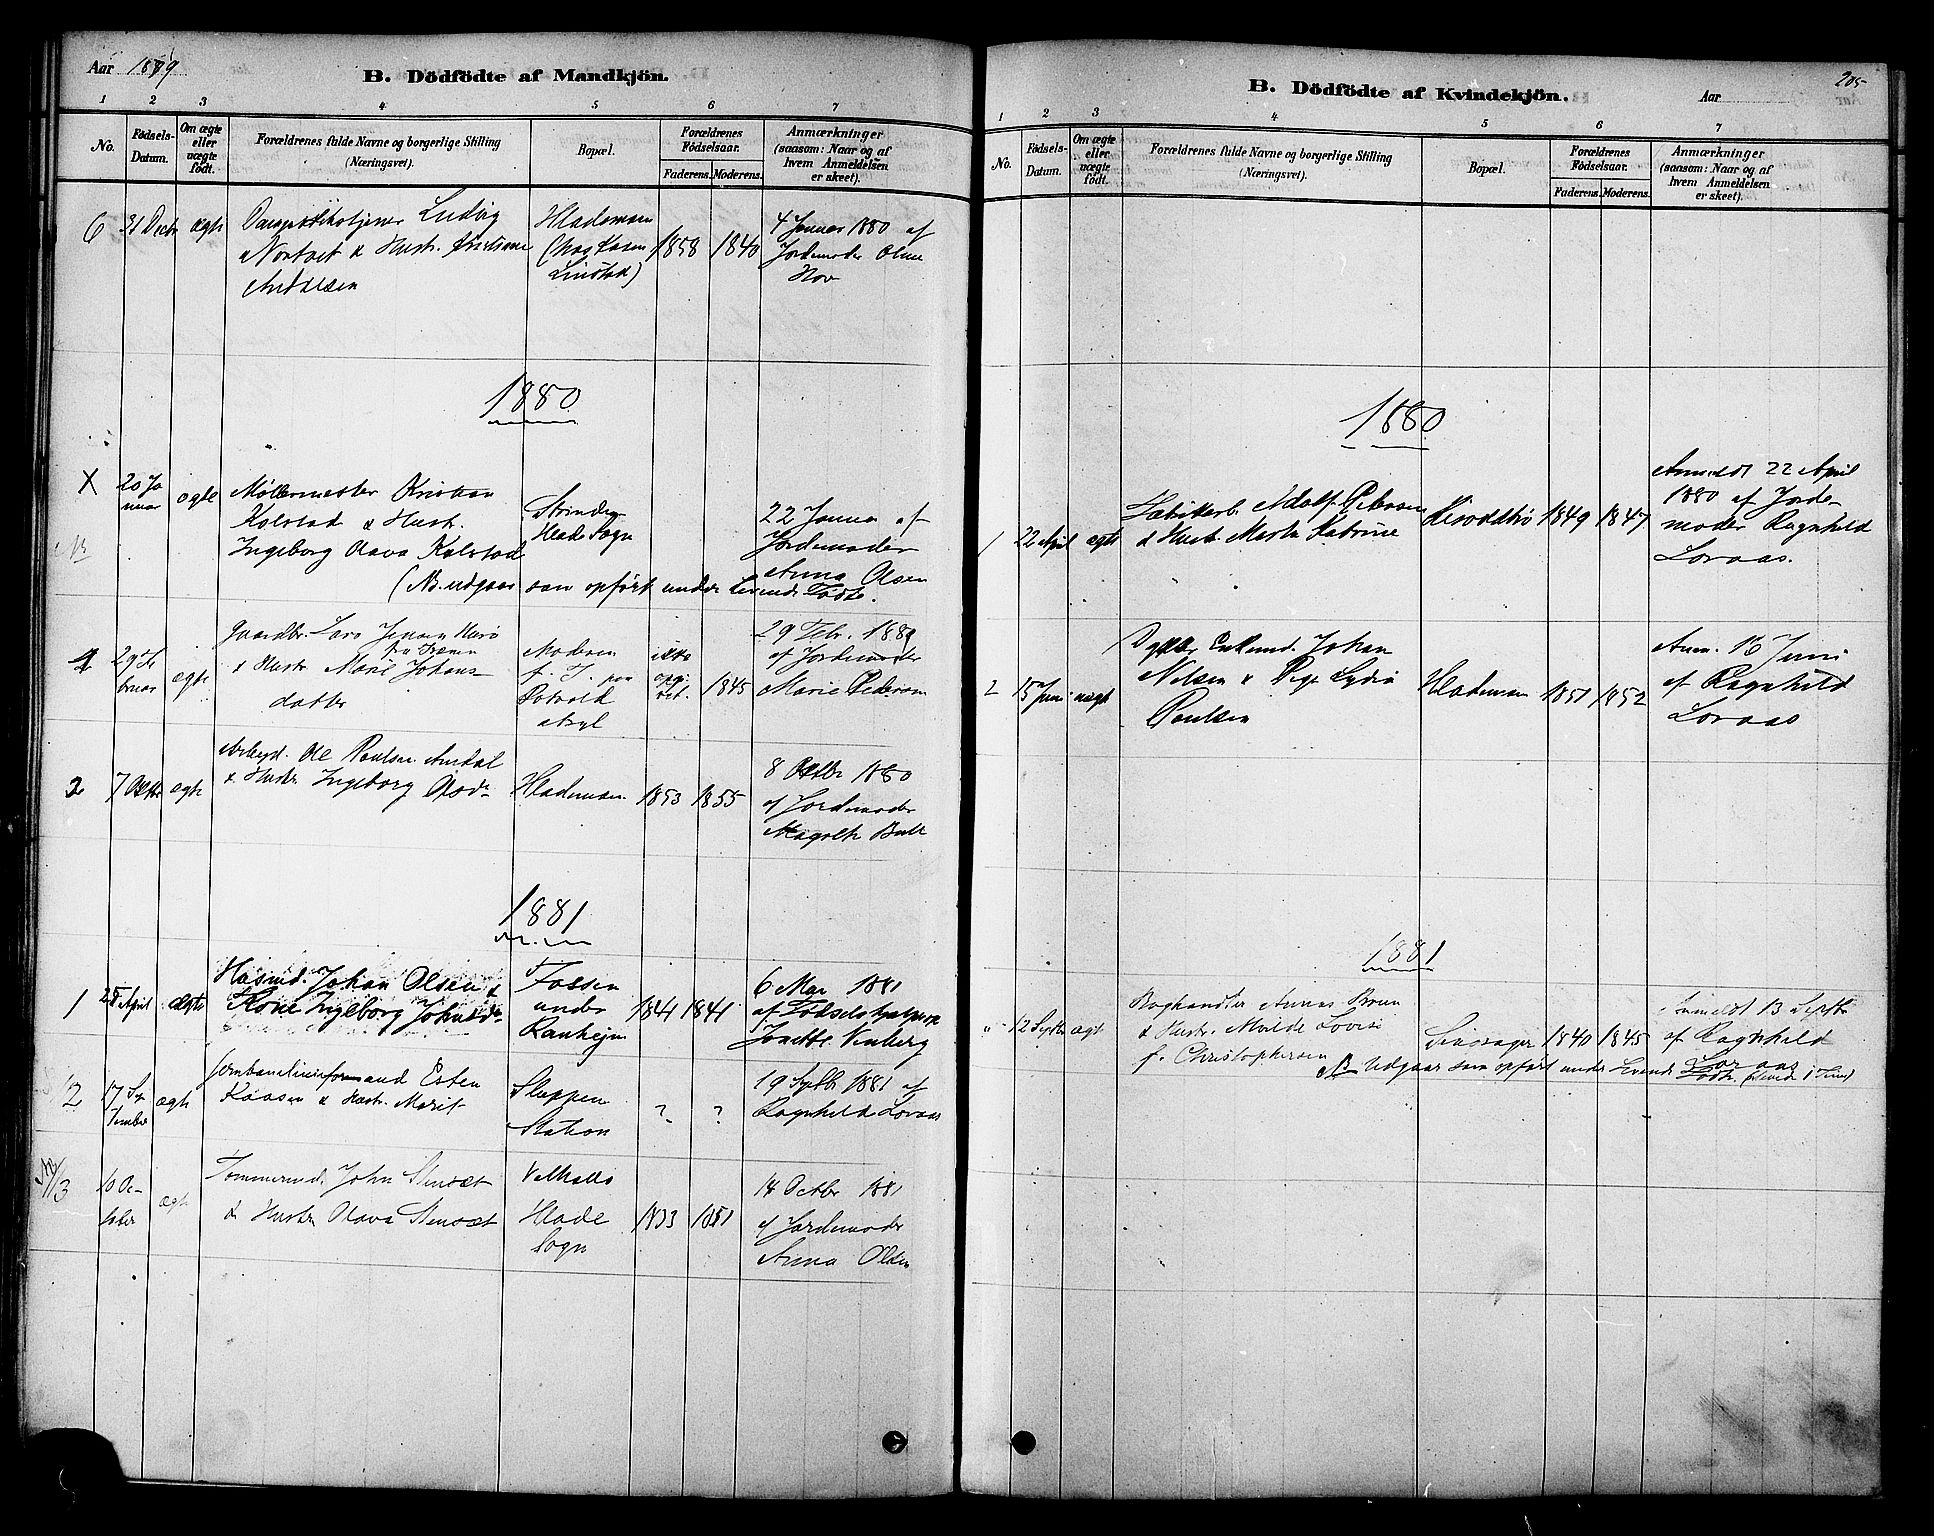 Aar 1879
B. Dödfödte af Mandkjön.
1 2 3 4 5 6 7
No.
Födsels-
Datum.
Om ægte
eller
uægte
födt.
Forældrenes fulde Navne og borgerlige Stilling
(Næringsvei).
Bopæl.
Forældrenes
Födselsaar.
Faderens. Moderens.
Anmærkninger
(saasom: Naar og af
hvem Anmeldelsen
er skeet).
6
31 Decbr
ægte
Ludvig
& Hustr. Kristiane
Andersen
Hlademoen
1858
1840
4 Januar 1880 af
Jordemoder Oline
Hov
1880
X
20 Ja
nuar
ægte
Møllermester Kristian
Kolstad & Hustr.
Ingeborg Olava Kolstad
Strinden
Hlade Sogn
22 Januar af
Jordemoder
Anna Olsen
(NB. udgaar som opført under levende Fødte.
29 Fe
bruar
ægte
Gaardbr. Lars Jensen
& Hustr. Marie Johans
datter
Moderen
f. T. paa
Rotvold
Asyl
ikke
opgi
vet.
1845
29 Febr. 1880
af Jordemoder
Marie Pedersen
2
7 Octbr
ægte
Arbeid. Ole Paulsen
& Hustr. Ingeborg Olsdr
Hlademoen
1853
1855
8 Octbr 1880
af Jordemoder
Magrete Bull
1881
1
25 April
ægte
Husmd. Johan Olsen &
Kone Ingeborg Johnsdr
Fossen
under
Ranhejm
1841
1841
6 Mai 1881
af Fødselshjælperske
Jonette Venberg
2
17 Sep
tember
ægte
Jernbanelinieformand Esten
Kaasen & Hustr. Marit
Sluppen
Station
?
?
19 Septb. 1881 af
Ragnhild Loraas
3
10 Oc-
tober
ægte
Tømmermd. John Stensæt
& Hustr. Olava Stensæt
Valhalla
Hlade
Sogn
1833
1851
14 Octbr 1881
af Jordemoder
Anna Olsen
205
B. Dödfödte af Kvindekjön.
Aar
1 2 3 4 5 6 7
No.
Födsels-
Datum.
Om ægte
eller
uægte
födt.
Forældrenes fulde Navne og borgerlige Stilling
(Næringsvei).
Bopæl.
Forældrenes
Födselsaar.
Faderens. Moderens.
Anmærkninger
(saasom: Naar og af
hvem Anmeldelsen
er skeet).
1880
1
22 April
ægte
Fabrikarb. Adolf Petersen
& Hustr. Marta Katrine
1849
1847
Anmeldt 22 April
1880 af Jorde-
moder Ragnhild
Loraas.
2
15 Juni
uægte
Enkemd. Johan
Nilsen & Pige Lydia
Paulsen
Hlademoen
1851
1852
Anm. 16 Juni
af Ragnhild
Loraas
1881
"
12 Septb
ægte
Boghandler Brun
& Hustr. Lovise
f. Christophersen
1840
1845
Anmeldt 13 Septbr
af Ragnhild
Loraas
NB Udgaar som opført under levende
Fødte.